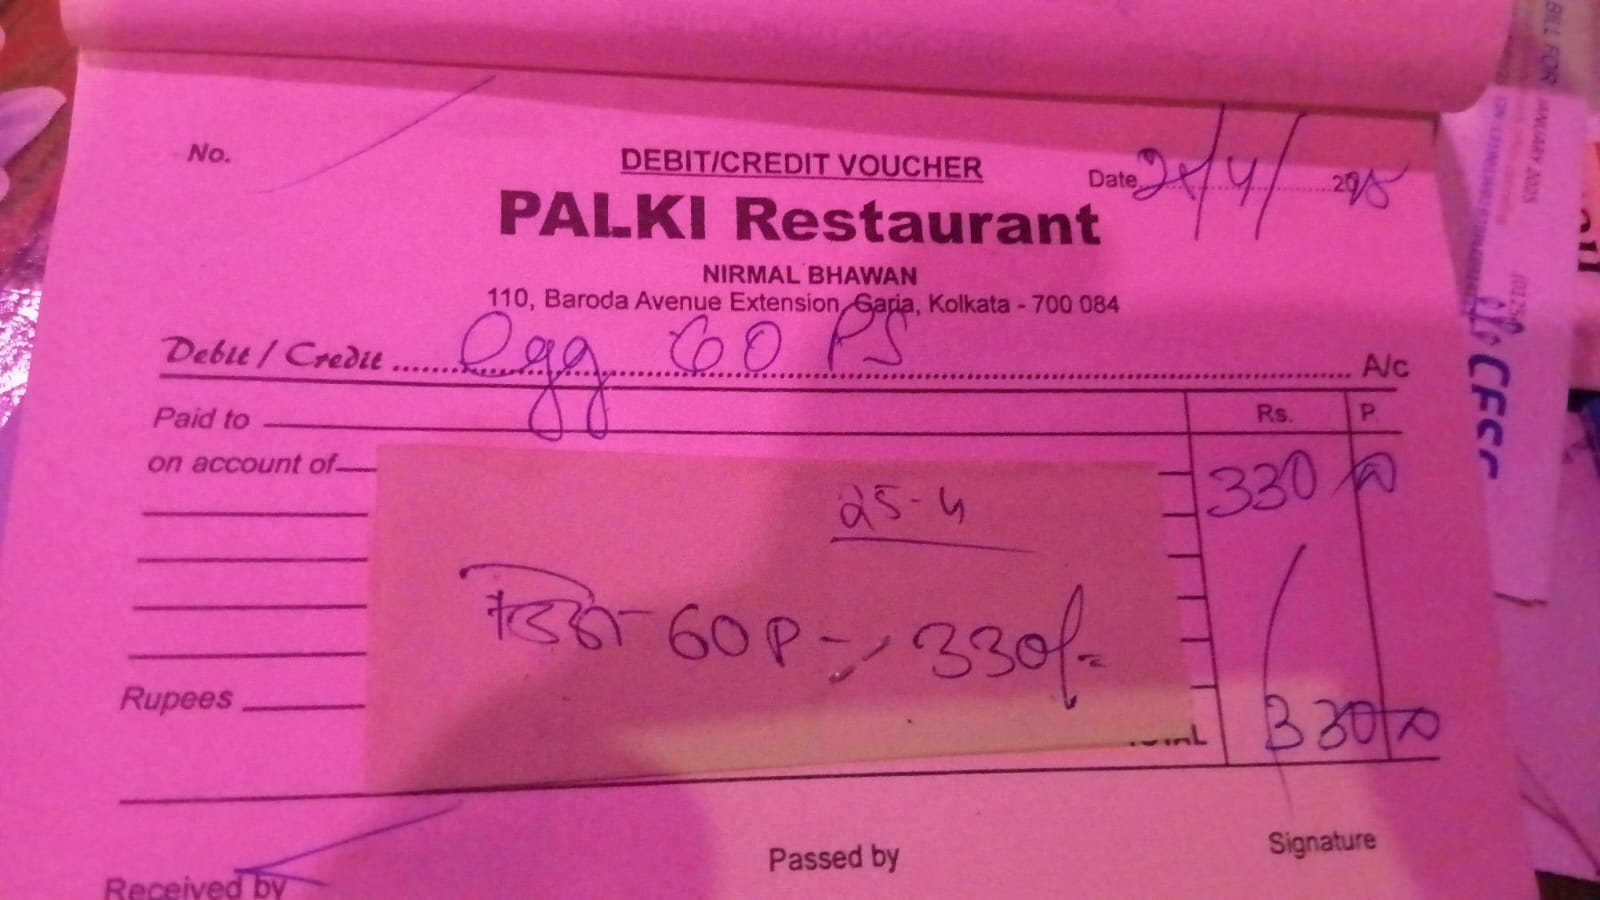 No.
DEBIT/CREDIT VOUCHER
Date 4/ 20
PALKI Restaurant
NIRMAL BHAWAN
110, Baroda Avenue Extension, Garia, Kolkata - 700 084
Debit / Credit Egg 60 PS A/c
Paid to
Rs. P.
on account of
330
25-4
60 P - 330/-
Rupees
TOTAL 330
Received by
Passed by
Signature
BILL FOR JANUARY 2025